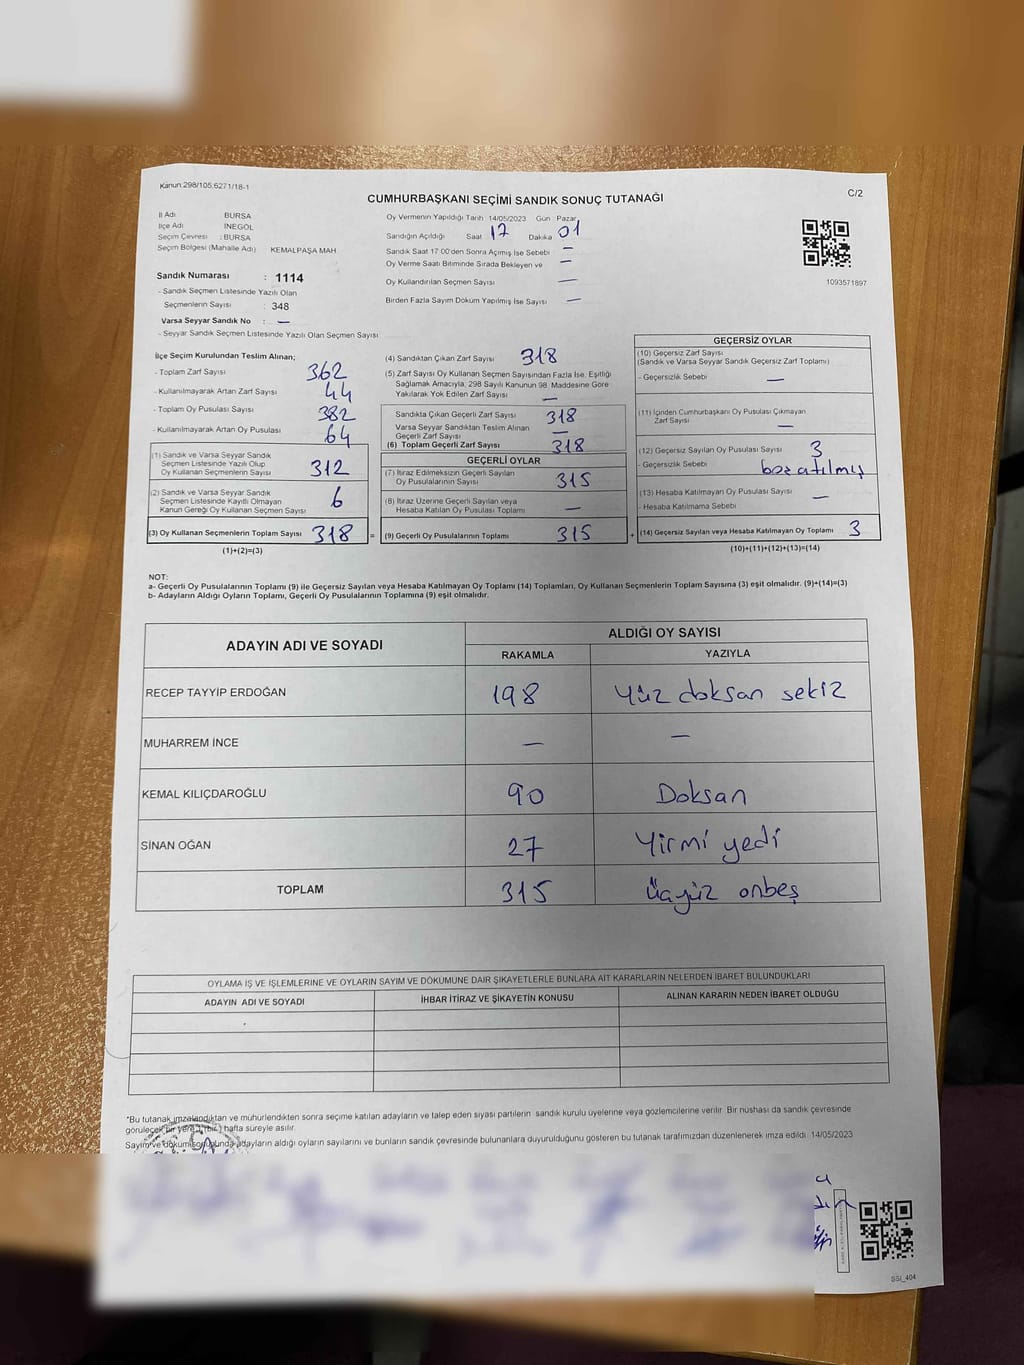 Kanun:298/105,6271/18-1
C/2
CUMHURBAŞKANI SEÇİMİ SANDIK SONUÇ TUTANAĞI
İl Adı BURSA
İlçe Adı İNEGÖL
Seçim Çevresi : BURSA
Seçim Bölgesi (Mahalle Adı) KEMALPAŞA MAH
Sandık Numarası : 1114
- Sandık Seçmen Listesinde Yazılı Olan
Seçmenlerin Sayısı : 348
Varsa Seyyar Sandık No : —
- Seyyar Sandık Seçmen Listesinde Yazılı Olan Seçmen Sayısı
Oy Vermenin Yapıldığı Tarih 14/05/2023 Gün Pazar
Sandığın Açıldığı Saat 17 Dakika 01
Sandık Saat 17:00'den Sonra Açımış İse Sebebi —
Oy Verme Saati Bitiminde Sırada Bekleyen ve —
Oy Kullandırılan Seçmen Sayısı —
Birden Fazla Sayım Döküm Yapılmış İse Sayısı —
1093571897
İlçe Seçim Kurulundan Teslim Alınan;
- Toplam Zarf Sayısı 362
- Kullanılmayarak Artan Zarf Sayısı 44
- Toplam Oy Pusulası Sayısı 382
- Kullanılmayarak Artan Oy Pusulası 64
(1) Sandık ve Varsa Seyyar Sandık
Seçmen Listesinde Yazılı Olup
Oy Kullanan Seçmenlerin Sayısı 312
(2) Sandık ve Varsa Seyyar Sandık
Seçmen Listesinde Kayıtlı Olmayan
Kanun Gereği Oy Kullanan Seçmen Sayısı 6
(3) Oy Kullanan Seçmenlerin Toplam Sayısı 318 =
(1)+(2)=(3)
(4) Sandıktan Çıkan Zarf Sayısı 318
(5) Zarf Sayısı Oy Kullanan Seçmen Sayısından Fazla İse, Eşitliği
Sağlamak Amacıyla, 298 Sayılı Kanunun 98. Maddesine Göre
Yakılarak Yok Edilen Zarf Sayısı —
Sandıkta Çıkan Geçerli Zarf Sayısı 318
Varsa Seyyar Sandıktan Teslim Alınan —
Geçerli Zarf Sayısı
(6) Toplam Geçerli Zarf Sayısı 318
GEÇERLİ OYLAR
(7) İtiraz Edilmeksizin Geçerli Sayılan
Oy Pusulalarının Sayısı 315
(8) İtiraz Üzerine Geçerli Sayılan veya
Hesaba Katılan Oy Pusulası Toplamı —
(9) Geçerli Oy Pusulalarının Toplamı 315 +
GEÇERSİZ OYLAR
(10) Geçersiz Zarf Sayısı
(Sandık ve Varsa Seyyar Sandık Geçersiz Zarf Toplamı)
- Geçersizlik Sebebi —
(11) İçinden Cumhurbaşkanı Oy Pusulası Çıkmayan
Zarf Sayısı —
(12) Geçersiz Sayılan Oy Pusulası Sayısı 3
- Geçersizlik Sebebi boz atılmış
(13) Hesaba Katılmayan Oy Pusulası Sayısı —
- Hesaba Katılmama Sebebi
(14) Geçersiz Sayılan veya Hesaba Katılmayan Oy Toplamı 3
(10)+(11)+(12)+(13)=(14)
NOT:
a- Geçerli Oy Pusulalarının Toplamı (9) ile Geçersiz Sayılan veya Hesaba Katılmayan Oy Toplamı (14) Toplamları, Oy Kullanan Seçmenlerin Toplam Sayısına (3) eşit olmalıdır. (9)+(14)=(3)
b- Adayların Aldığı Oyların Toplamı, Geçerli Oy Pusulalarının Toplamına (9) eşit olmalıdır.
ADAYIN ADI VE SOYADI
ALDIĞI OY SAYISI
RAKAMLA YAZIYLA
RECEP TAYYİP ERDOĞAN 198 Yüz doksan sekiz
MUHARREM İNCE — —
KEMAL KILIÇDAROĞLU 90 Doksan
SİNAN OĞAN 27 Yirmi yedi
TOPLAM 315 üçyüz onbeş
OYLAMA İŞ VE İŞLEMLERİNE VE OYLARIN SAYIM VE DÖKÜMÜNE DAİR ŞİKAYETLERLE BUNLARA AİT KARARLARIN NELERDEN İBARET BULUNDUKLARI
ADAYIN ADI VE SOYADI İHBAR İTİRAZ VE ŞİKAYETİN KONUSU ALINAN KARARIN NEDEN İBARET OLDUĞU
*Bu tutanak imzalandıktan ve mühürlendikten sonra seçime katılan adayların ve talep eden siyasi partilerin sandık kurulu üyelerine veya gözlemcilerine verilir. Bir nüshası da sandık çevresinde
görülecek bir yere 1 (bir) hafta süreyle asılır.
Sayım ve döküm sonucunda adayların aldığı oyların sayılarını ve bunların sandık çevresinde bulunanlara duyurulduğunu gösteren bu tutanak tarafımızdan düzenlenerek imza edildi. 14/05/2023
SSI_404